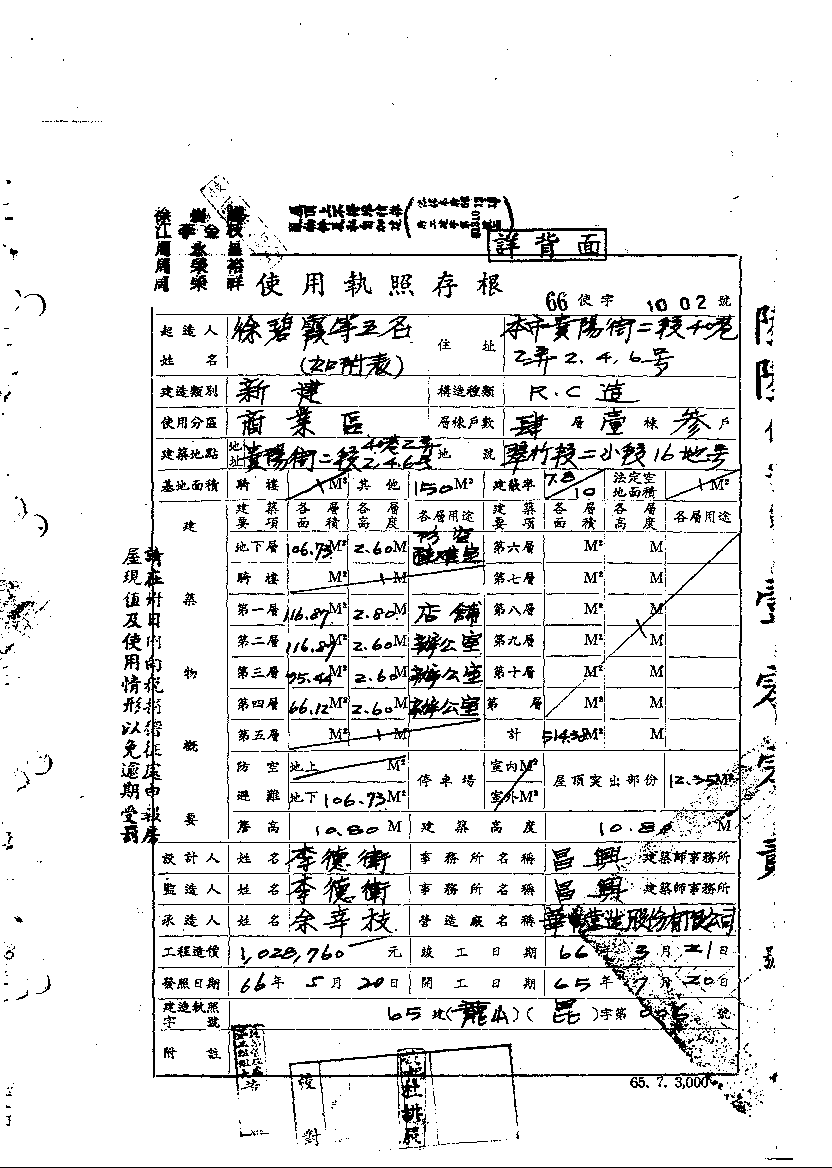 詳背面
使用執照存根
66 使字 1002 號
起造人姓名 徐碧霞等五名 (如附表) 住址 本市貴陽街二段40巷 2弄2.4.6号
建造類別 新建 構造種類 R.C造
使用分區 商業區 層棟戶數 肆層壹棟參戶
建築地點 地址 貴陽街二段40巷2弄2.4.6号 地號 翠竹段二小段16地号
基地面積 騎樓 M² 其他 150M² 建蔽率 7.8/10 法定空地面積 M²
建築物概要
建築要項 各層面積 各層高度 各層用途 建築要項 各層面積 各層高度 各層用途
地下層 106.73M² 2.60M 防空避難室 第六層 M² M
騎樓 M² M 第七層 M² M
第一層 116.87M² 2.80M 店舖 第八層 M² M
第二層 116.87M² 2.60M 辦公室 第九層 M² M
第三層 95.44M² 2.60M 辦公室 第十層 M² M
第四層 66.12M² 2.60M 辦公室 第 層 M² M
第五層 M² M 計 514.38M² M
防空避難 地上 M² 地下 106.73M² 停車場 室內M² 室外M² 屋頂突出部份 12.35M²
簷高 10.80 M 建築高度 10.80 M
設計人 姓名 李德衛 事務所名稱 昌興 建築師事務所
監造人 姓名 李德衛 事務所名稱 昌興 建築師事務所
承造人 姓名 余幸枝 營造廠名稱 營造股份有限公司
工程造價 1,028,760 元 竣工日期 66 3月21日
發照日期 66年5月20日 開工日期 65年7月20日
建造執照字號 65建(龍山)(昆)字第 號
附註
校對
65. 7. 3,000
屋現值及使用情形以免逾期受罰